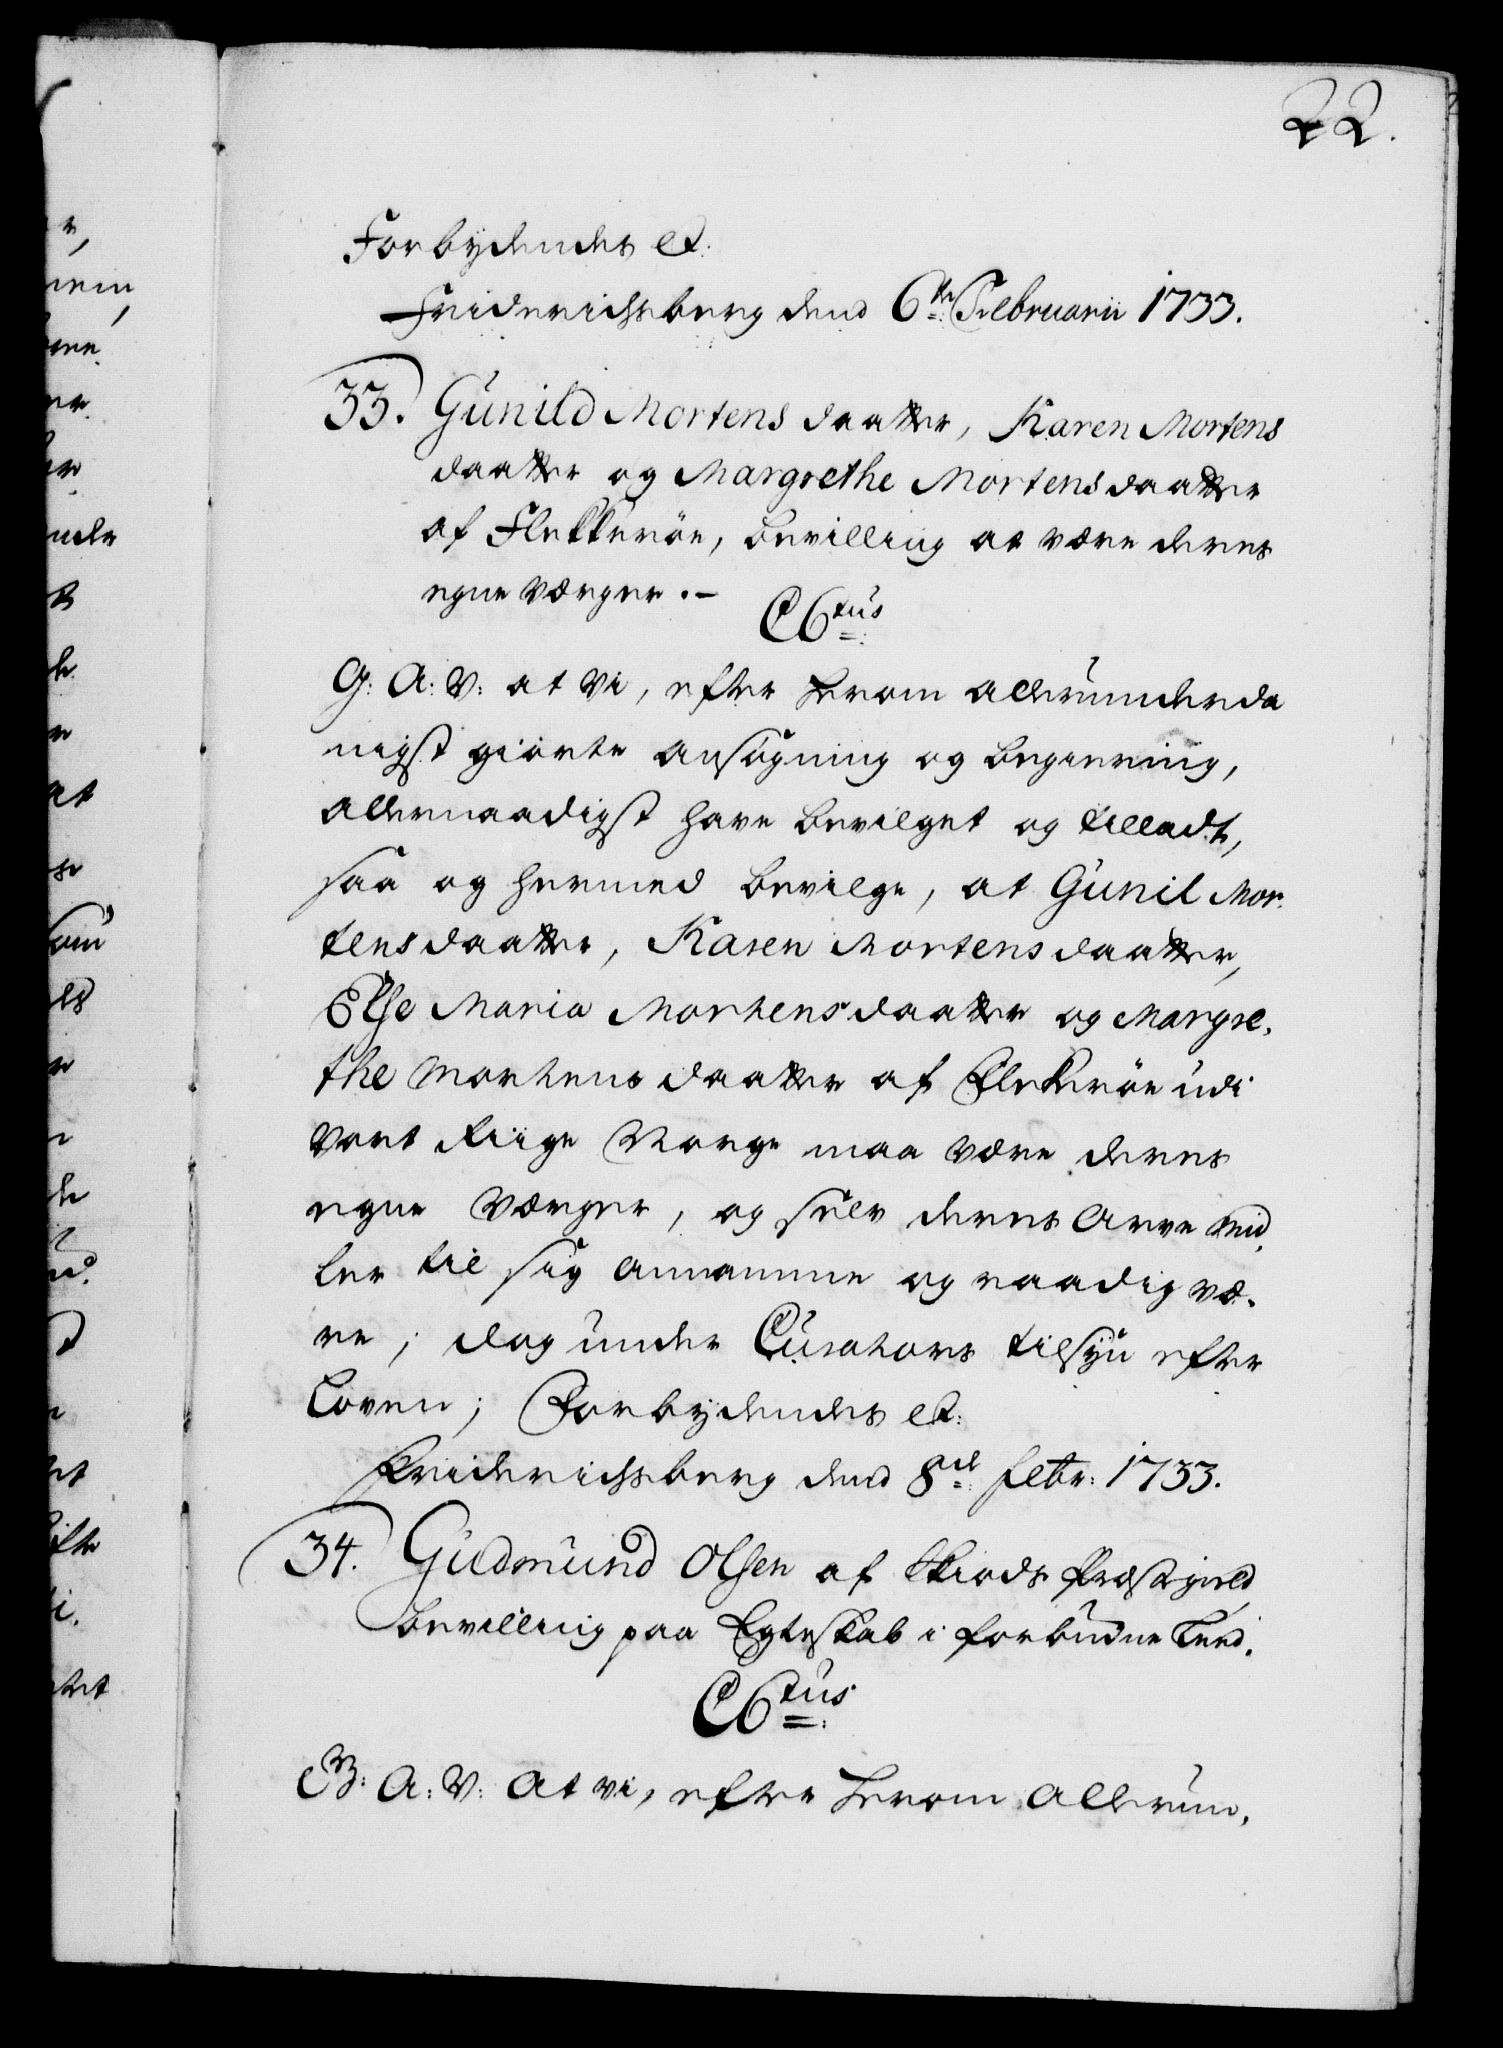 22.
Forbydendes etc:
Friderichsberg dend 6te: Februarii 1733.
33. Gunild Mortens daatter, Karen Mortens
daatter og Margrethe Mortensdaatter
af Flekkerøe, bevilling at være deres
egne værger.-
C6tus
G: A: V: at vi, efter herom allerunderda
nigst giorte ansøgning og begiering,
allernaadigst have bevilget og tilladt,
saa og hermed bevilge, at Gunil Mor.
tensdaatter, Karen Mortensdaatter,
Else Maria Mortensdaatter og Margre.
the Mortensdaatter af Flekerøe udi
vort Riige Norge maa være deres
egne værger, og selv deres Arve mid.
ler til sig annamme og raadig væ.
re; dog under Curators tilsyn efter
Loven; Forbydendes etc:
Friderichsberg dend 8de: Febr: 1733.
34. Gudmund Olsen af Præstegield
bevilling paa Egteskab i forbudne Leed.
C6tus
G: A: V: at vi, efter herom allerun.